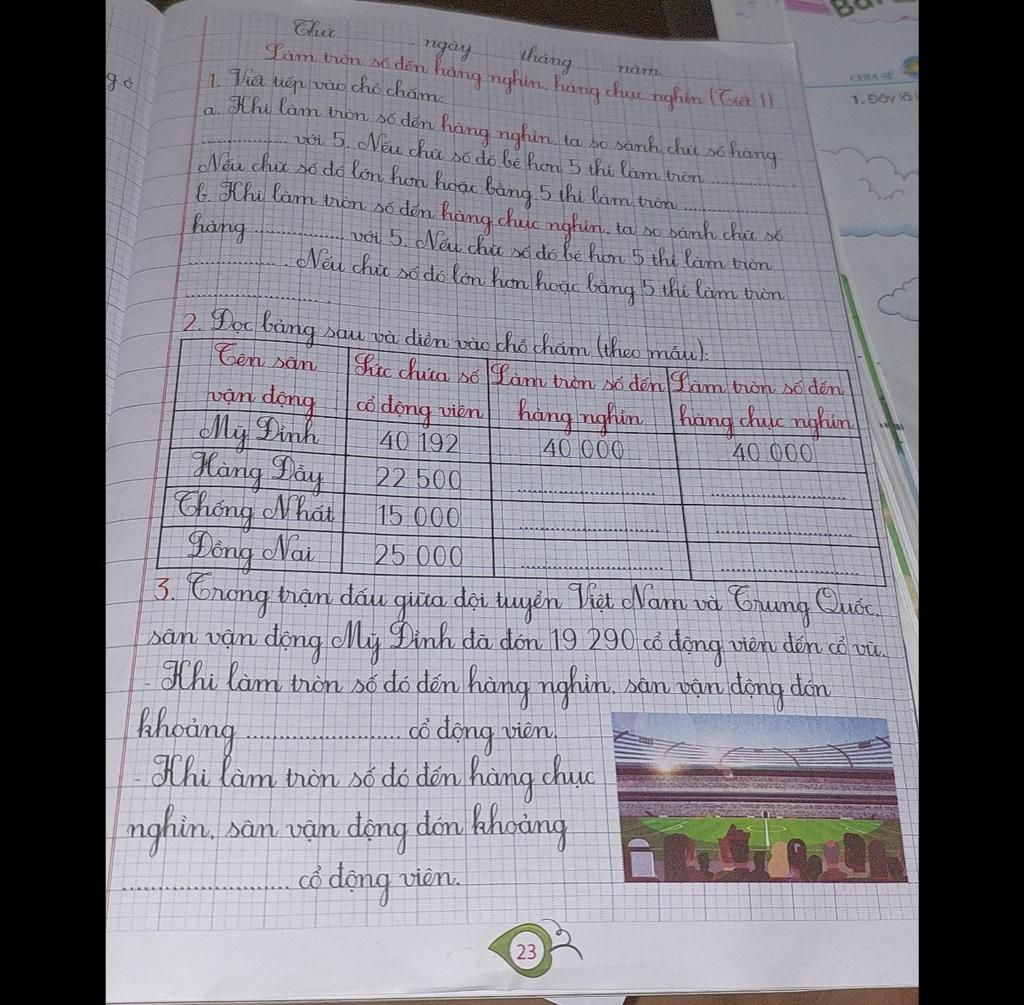 Thứ ngày tháng năm
Làm tròn số đến hàng nghìn, hàng chục nghìn (Tiết 1)
1. Viết tiếp vào chỗ chấm:
a. Khi làm tròn số đến hàng nghìn, ta so sánh chữ số hàng
.............. với 5. Nếu chữ số đó bé hơn 5 thì làm tròn ..............
Nếu chữ số đó lớn hơn hoặc bằng 5 thì làm tròn ......................
b. Khi làm tròn số đến hàng chục nghìn, ta so sánh chữ số
hàng ................ với 5. Nếu chữ số đó bé hơn 5 thì làm tròn
................. Nếu chữ số đó lớn hơn hoặc bằng 5 thì làm tròn
.......................
2. Đọc bảng sau và điền vào chỗ chấm (theo mẫu):
Tên sân vận động | Sức chứa số cổ động viên | Làm tròn số đến hàng nghìn | Làm tròn số đến hàng chục nghìn
Mỹ Đình | 40 192 | 40 000 | 40 000
Hàng Đẫy | 22 500 | ........................ | ........................
Thống Nhất | 15 000 | ........................ | ........................
Đồng Nai | 25 000 | ........................ | ........................
3. Trong trận đấu giữa đội tuyển Việt Nam và Trung Quốc,
sân vận động Mỹ Đình đã đón 19 290 cổ động viên đến cổ vũ.
- Khi làm tròn số đó đến hàng nghìn, sân vận động đón
khoảng ........................ cổ động viên.
- Khi làm tròn số đó đến hàng chục
nghìn, sân vận động đón khoảng
........................ cổ động viên.
23
1. Đây là